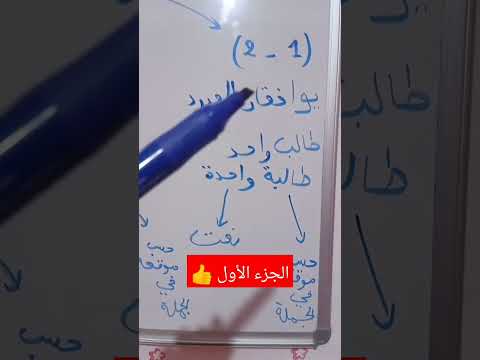 (1 - 2)
يوافقان
طالب واحد
طالبة واحدة
نعت
حسب
موقعه
في
الجملة
حسب
موقعه
في
الجملة
حسب
الجزء الأول 👍